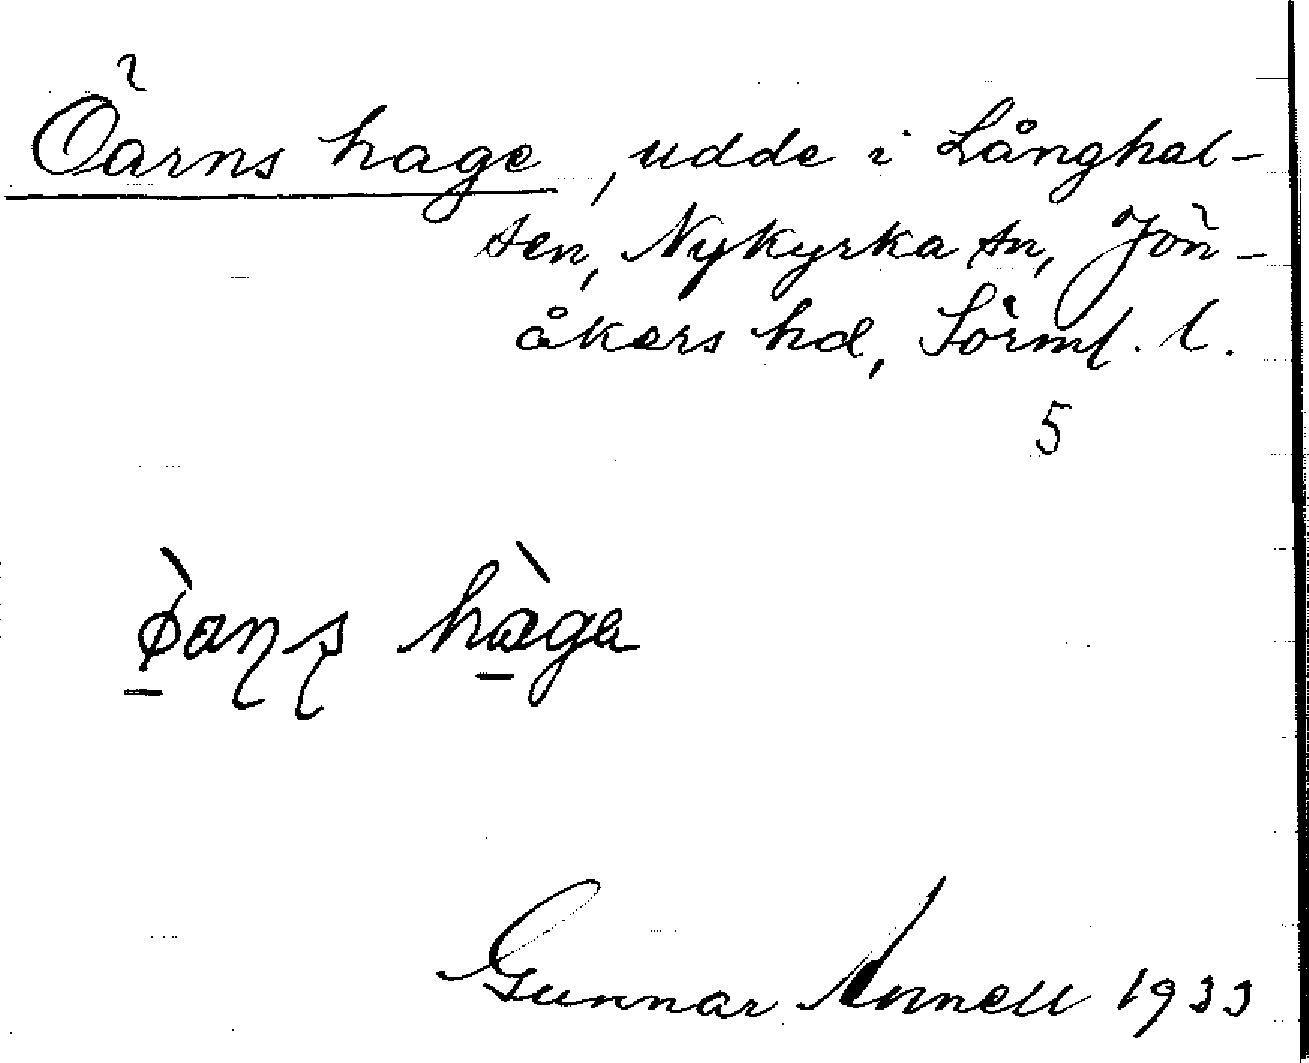 Öarns hage, udde i Långhal-
sen, Nykyrka sn, Jön-
åkers hd, Sörml. l.
5
ø̀aɳʂ hàga
Gunnar Annell 1933